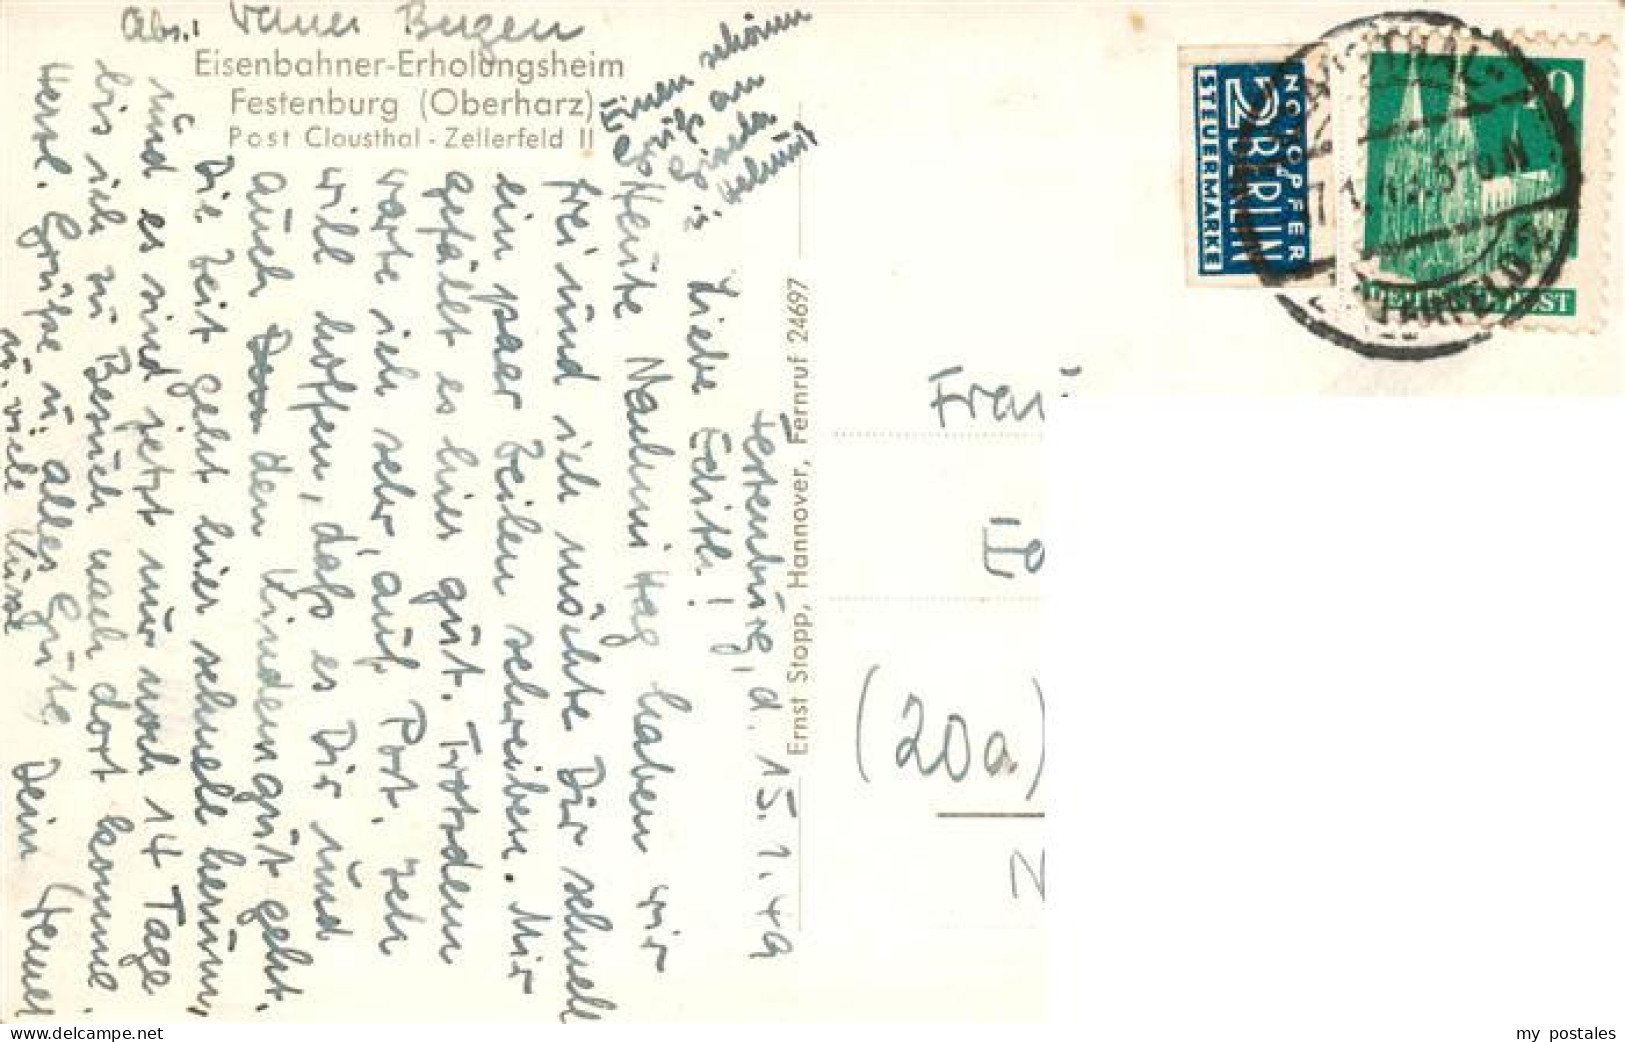 Abs.: Werner Bergen
Eisenbahner-Erholungsheim
Festenburg (Oberharz)
Post Clausthal - Zellerfeld II
Einen schönen
Gruß an
Gisela
u. Helmut
Festenburg, d. 15.1.49
Liebe Edith!
Heute Nachmittag haben wir
frei und ich möchte Dir schnell
ein paar Zeilen schreiben. Mir
gefällt es hier gut. Trotzdem
warte ich sehr, auf Post. Ich
will hoffen, daß es Dir und
auch den Kindern gut geht.
Die Zeit geht hier schnell herum,
und es sind jetzt nur noch 14 Tage
bis ich zu Besuch nach dort komme.
Herzl. Grüße u. alles Gute Dein Werner
u. viele Küsse
Ernst Stopp, Hannover, Fernruf 24697
NOTOPFER
2 BERLIN
STEUERMARKE
DEUTSCHE POST
Frau
(20a)
my postales
www.delcampe.net